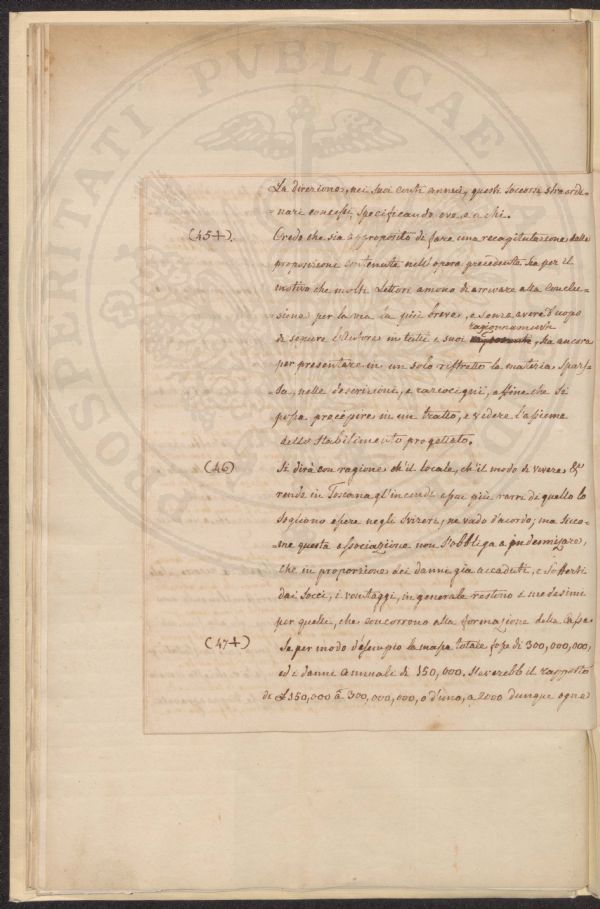 PROSPERITATI PVBLICAE
La direzione, nei suoi conti annui, questi soccorsi straordi-
-nari concessi, specificando ove, e a chi.
(45+). Credo che sia approposito di fare una recapitulazione delle
proposizioni contenute nell'opera precedente sia per il
motivo che molti Lettori amono di arrivare alla conclu-
-sione per la via la più breve, e senza avere d'uopo
ragionnamenti
di seguire l'Autore in tutti e suoi , sia ancora
per presentare in un solo ristretto la materia spars-
-sa, nelle descrizioni, e raziocigni, affine che si
possa procepire in un tratto, e vedere l'assieme
dello stabilimento progettato.
(46) Si dirà con ragione ch'il locale, ch'il modo di vivere &c
rende in Toscana gl'incendi assai più rari di quello lo
sogliono essere negli Svizeri; ne vado d'acordo; ma sicco-
-me questa associazione non s'obbliga a indemizare,
che in proporzione dei danni gia accaduti, e sofferti
dai Socci, i vantaggi, in generale restono i medesimi
per quelli, che concorrono alla formazione della Cassa
(47+) Se per modo d'esempio la massa totale fosse di 300,000,000,
ed i danni annuali di 150,000. S'averebb il rapporto
di £150,000 â 300,000,000, o d'uno, a 2000 dunque ogni